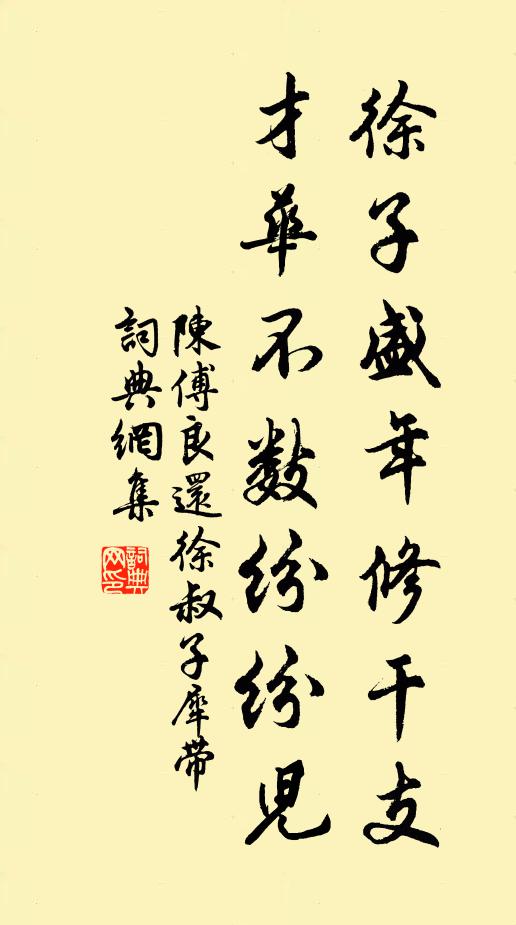 徐子盛年修干支
才華不数紛紛児
陳傅良還徐叔子犀帶
詞典網集
詞典网印